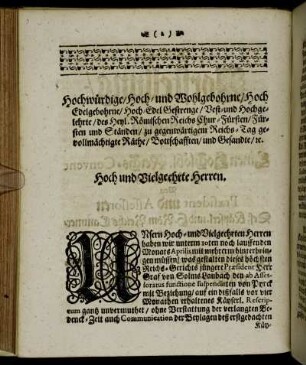 ( 2 )
Hochwürdige/ Hoch- und Wohlgebohrne/ Hoch
Edelgebohrne/ Hoch-Edel Gestrenge/ Vest- und Hochge-
lehrte/ des Heyl. Römischen Reichs Chur-Fürsten/ Für-
sten und Ständen/ zu gegenwärtigem Reichs-Tag ge-
vollmächtigte Räthe/ Bottschafften/ und Gesandte/ ꝛc.
Hoch und Vielgeehrte Herren.
UNsern Hoch- und Vielgeehrten Herren
haben wir unterm 20ten noch lauffenden
Monats Aprilis mit mehrerm hinterbrin-
gen müssen/ was gestalten dieser höchsten
Reichs-Gerichts jüngere Præsident Herr
Graf von Solms Laubach den ab Asses-
soratus functione suspendirten von Pyrck
mit Beziehung/ auf ein dißfalls vor vier
Monathen erhaltenes Käyserl. Rescrip-
tum gantz unvermuthet/ ohne Verstattung der verlangten Be-
denck-Zeit auch Communication der Beylagen deß erstgedachten
Käy-